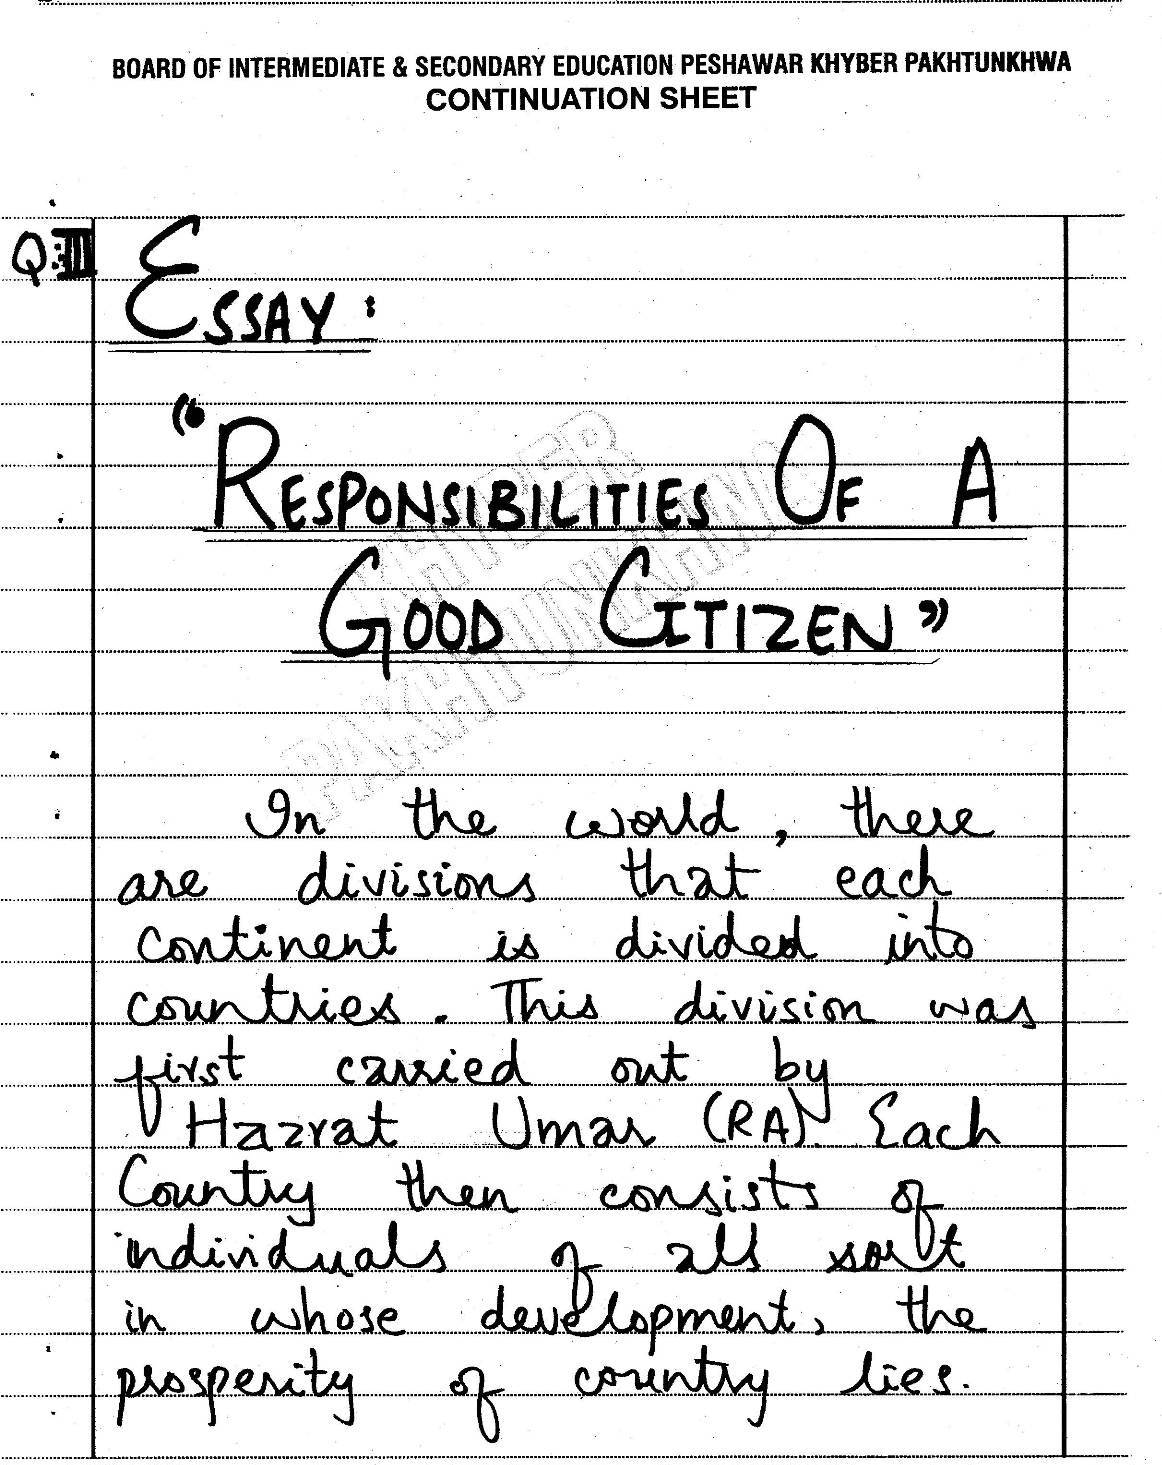 BOARD OF INTERMEDIATE & SECONDARY EDUCATION PESHAWAR KHYBER PAKHTUNKHWA
CONTINUATION SHEET
Q:III
ESSAY:
"RESPONSIBILITIES OF A
GOOD CITIZEN"
KHYBER
PAKHTUNKHWA
In the world, there
are divisions that each
continent is divided into
countries. This division was
first carried out by
Hazrat Umar (RA). Each
Country then consists of
individuals of all sort
in whose development, the
prosperity of country lies.